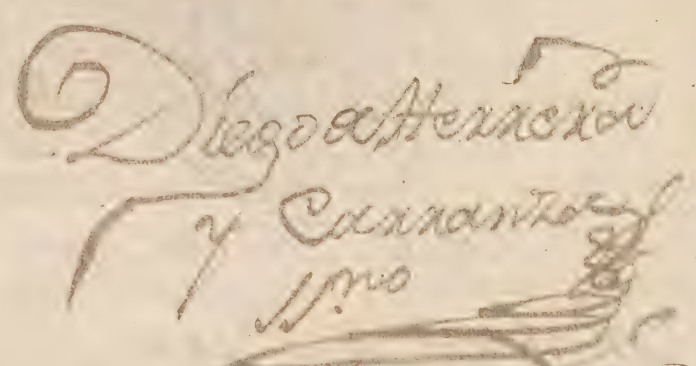 Diego Herrera
y Carranza